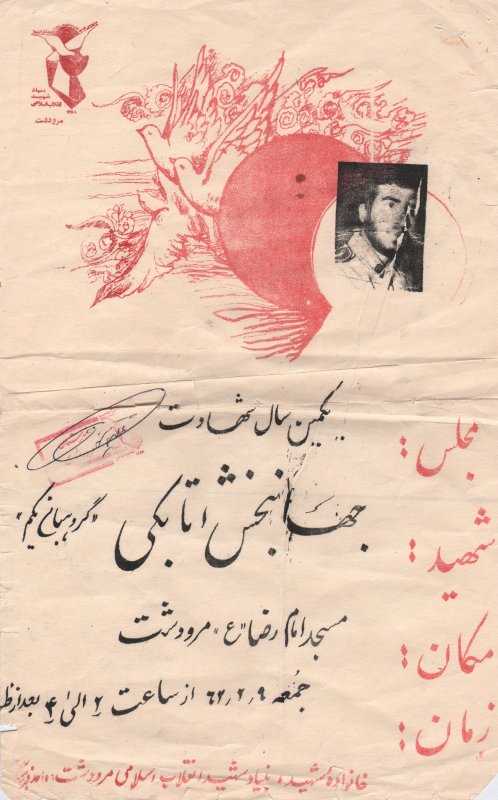 بنیاد
شهید
انقلاب اسلامی
مرودشت
مجلس: یکمین سال شهادت
شهید: جهانبخش اتابکی «گروهبان یکم»
مکان: مسجد امام رضا «ع» مرودشت
زمان: جمعه ۶۲٫۲٫۹ از ساعت ۲ الی ۴ بعد از ظ
خانواده شهید، بنیاد شهید انقلاب اسلامی مرودشت